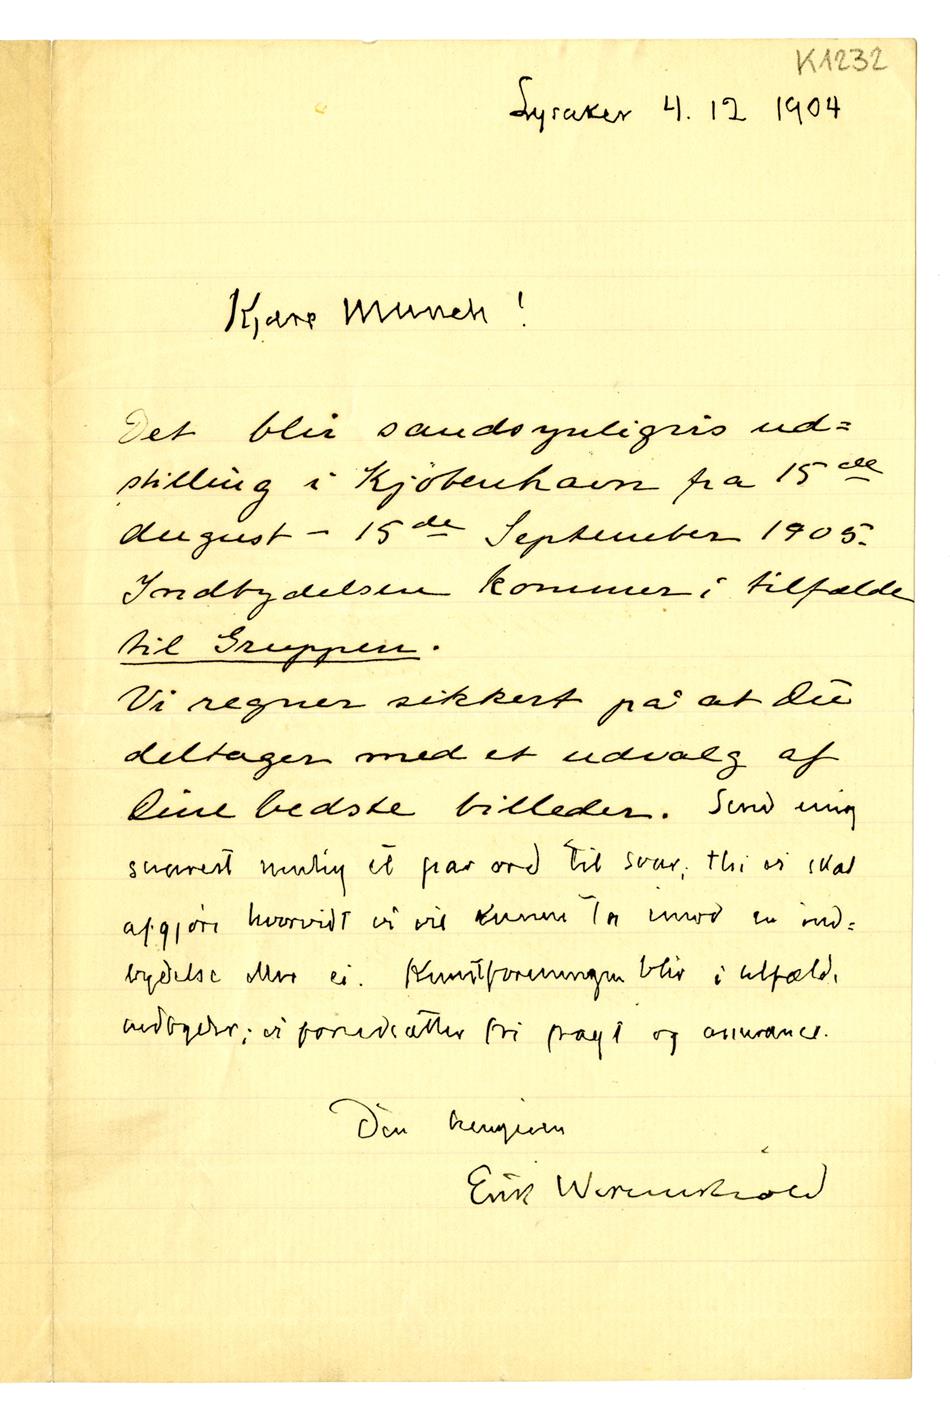 K1232
Lysaker 4. 12 1904
Kjære Munch!
Det blir sandsynligvis ud=
stilling i Kjöbenhavn fra 15de
August - 15de September 1905.
Indbydelsen kommer i tilfælde
til Gruppen.
Vi regner sikkert på at Du
deltager med et udvalg af
Dine bedste billeder. Send mig
snarest mulig et par ord til svar; thi vi skal
afgjöre hvorvidt vi vil kunne ta imod en ind=
bydelse eller ei. Kunstforeningen blir i tilfælde
indbyder; vi forudsætter fri fragt og assurance.
Din hengivne
Erik Werenskiold